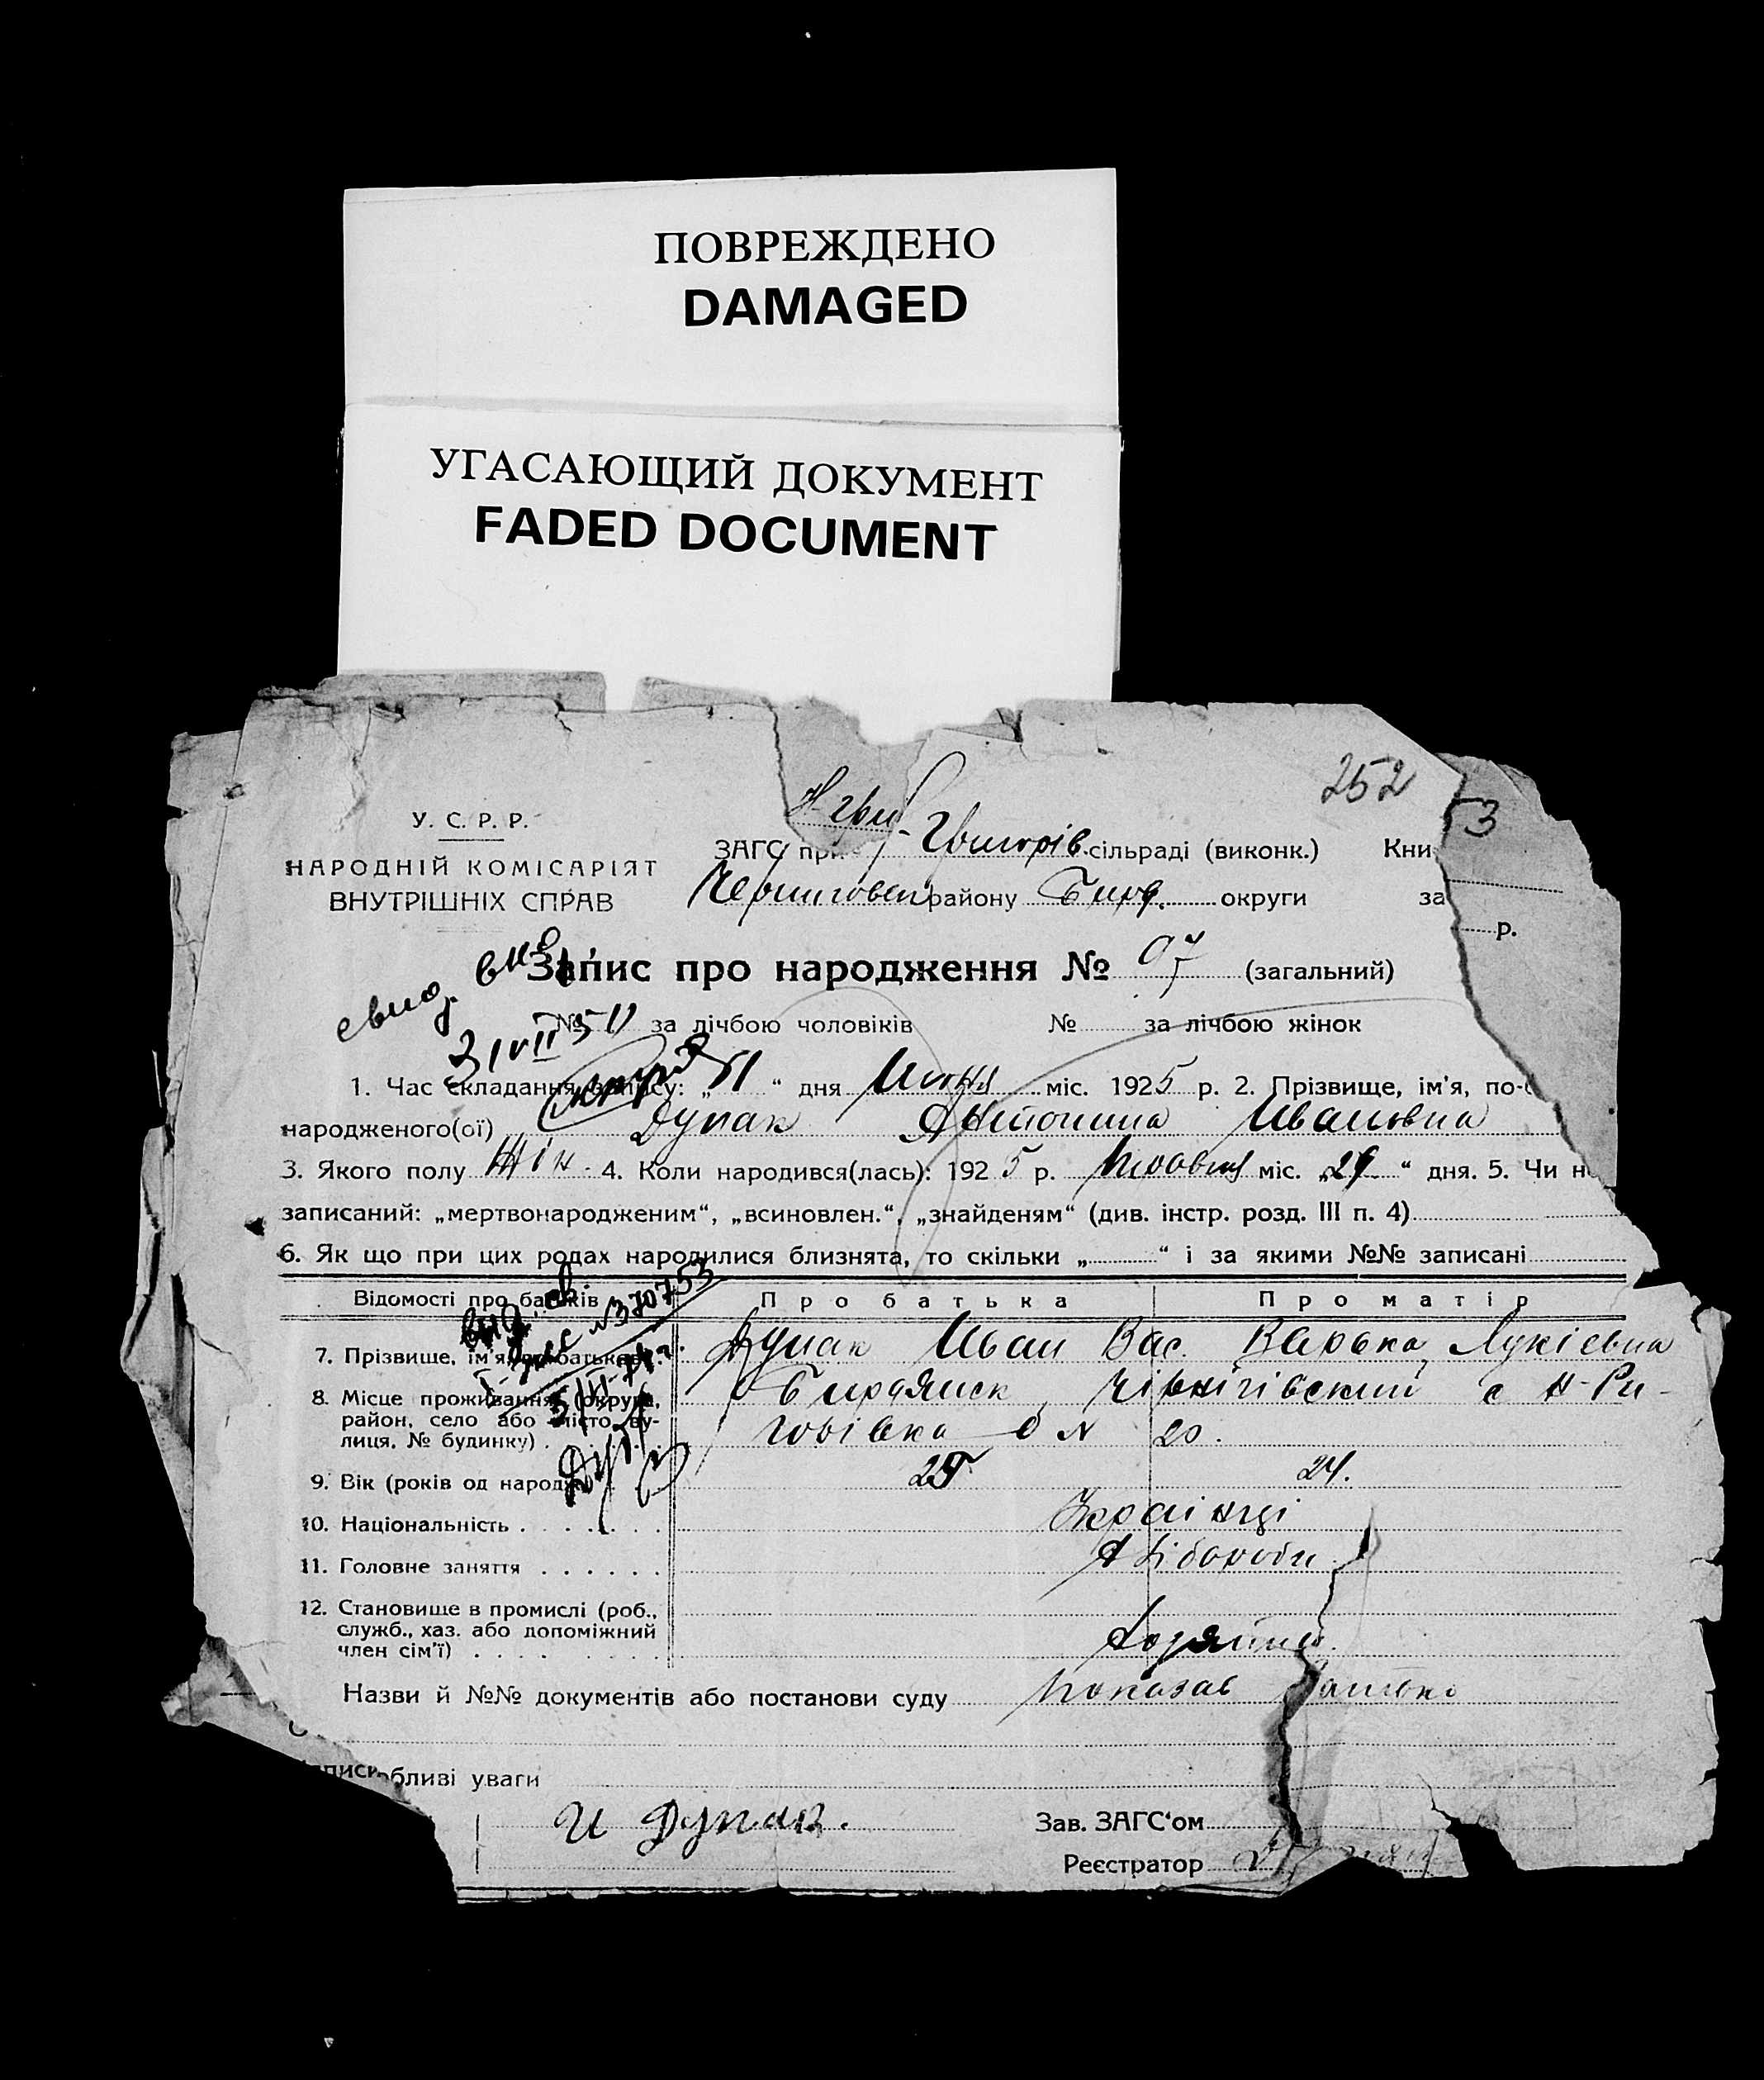 ПОВРЕЖДЕНО
DAMAGED
УГАСАЮЩИЙ ДОКУМЕНТ
FADED DOCUMENT
252
53
У. С. Р. Р.
НАРОДНІЙ КОМІСАРІЯТ
ВНУТРІШНІХ СПРАВ
ЗАГС при Григорів. сільраді (виконк.) Кни
району Бирд. округи за
р.
Запис про народження № 97 (загальний)
№ за лічбою чоловіків № за лічбою жінок
1. Час складання запису: „ “ дня міс. 1925 р. 2. Прізвище, ім'я, по-б
народженого(ої) Дупак Антонина Ивановна
3. Якого полу жін. 4. Коли народився(лась): 1925 р. міс. „29“ дня. 5. Чи не
записаний: „мертвонародженим“, „всиновлен.“, „знайденям“ (див. інстр. розд. III п. 4)
6. Як що при цих родах народилися близнята, то скільки „ “ і за якими №№ записані
Відомості про батьків Про батька Про матір
№ 370753
7. Прізвище, ім'я, по батькові Дупак Иван Вас. Варька Лукієвна
8. Місце проживання (округа, район, село або місто, вулиця, № будинку) Бирдянск с Н-Ри-
говівка д N 20.
9. Вік (років од народж.) 25 24.
10. Національність Украінці
11. Головне заняття Хлібороби
12. Становище в промислі (роб., служб., хаз. або допоміжний член сім'ї)
Назви й №№ документів або постанови суду показав батько
обливі уваги
писи
И Дупак.
Зав. ЗАГС'ом
Реєстратор